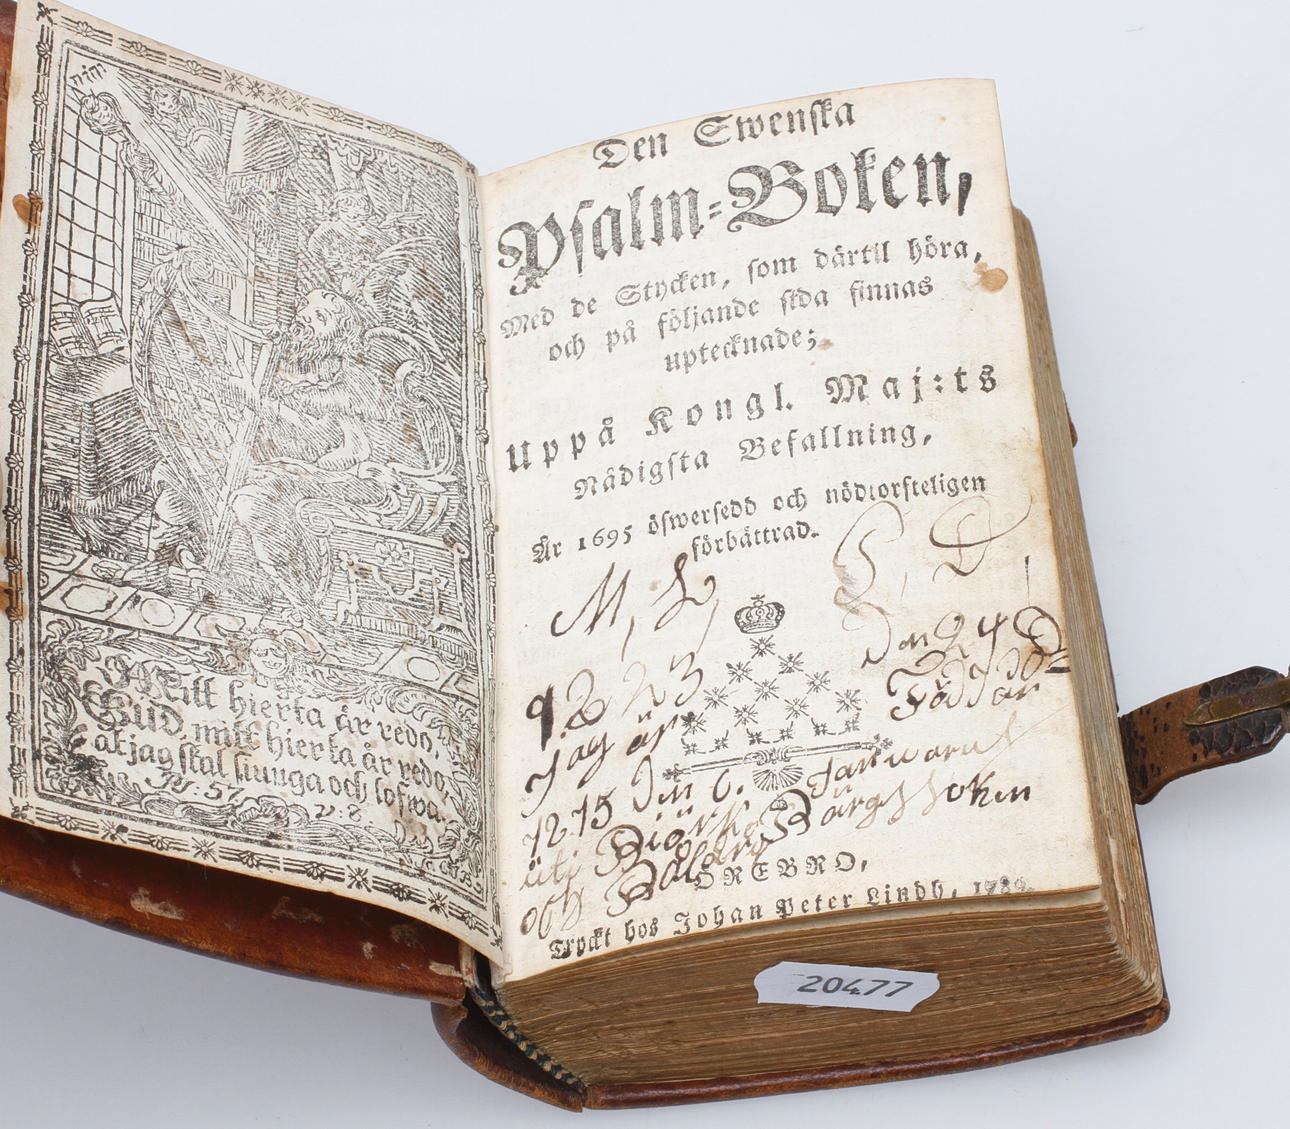 Mitt hierta är redo,
Gud, mitt hierta är redo,
at jag skal siunga och lofwa.
Ps. 57. v: 8
Den Swenska
Psalm=Boken,
Med de Stycken, som därtil höra,
och på följande sida finnas
uptecknade;
Uppå Kongl. Maj:ts
Nådigsta Befallning,
År 1695 öfwersedd och nödtorfteligen
förbättrad.
M, L,
Den 24
jag är Född år
Den 6. Januarus
uti Biörke Bärgs soken
och
ÖREBRO,
Tryckt hos Johan Peter Lindh,
20477